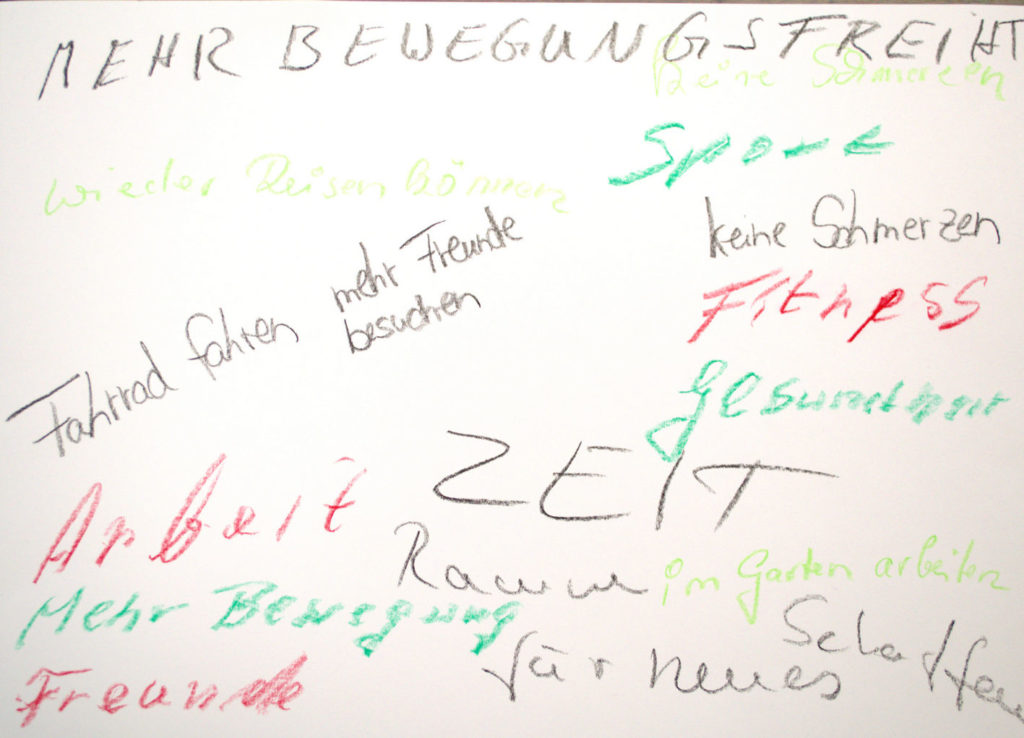 MEHR BEWEGUNGSFREIHT
Keine Schmerzen
Sport
wieder Reisen können
keine Schmerzen
mehr Freunde
besuchen
Fitness
Fahrrad fahren
Gesundheit
ZEIT
Arbeit
Raum
im Garten arbeiten
Mehr Bewegung
für neues Schaffen
Freunde